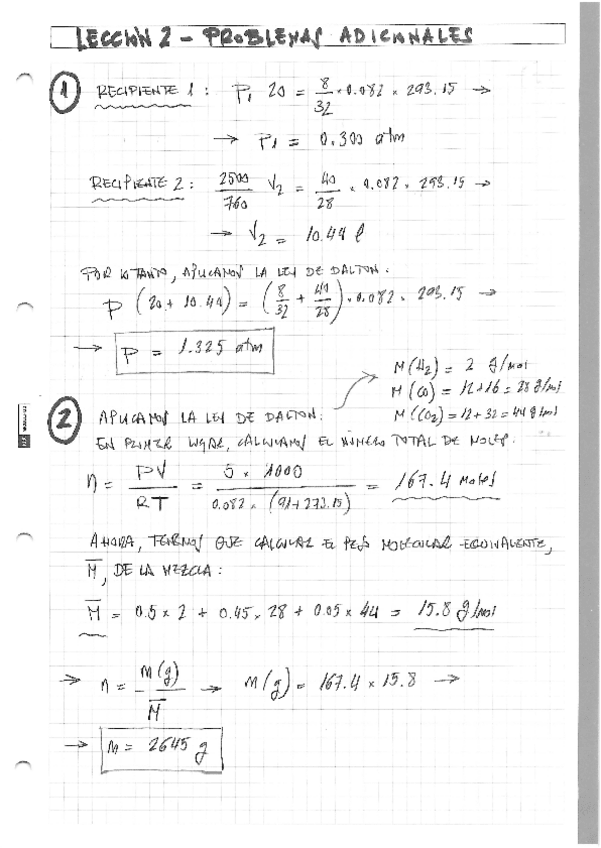 LECCIÓN 2 - PROBLEMAS ADICIONALES
1 RECIPIENTE 1: P1 20 = 8/32 × 0.082 × 293.15 →
→ P1 = 0.300 atm
RECIPIENTE 2: 2500/760 V2 = 40/28 × 0.082 × 293.15 →
→ V2 = 10.44 l
POR LO TANTO, APLICAMOS LA LEY DE DALTON:
P (20 + 10.44) = (8/32 + 40/28) × 0.082 × 293.15 →
→ P = 1.325 atm
M(H2) = 2 g/mol
M(CO) = 12+16 = 28 g/mol
M(CO2) = 12 + 32 = 44 g/mol
2 APLICAMOS LA LEY DE DALTON.
EN PRIMER LUGAR, CALCULAMOS EL NÚMERO TOTAL DE MOLES.
n = PV/RT = 5 × 1000/0.082 × (91+273.15) = 167.4 moles
AHORA, TENEMOS QUE CALCULAR EL PESO MOLECULAR EQUIVALENTE,
M̅, DE LA MEZCLA:
M̅ = 0.5 × 2 + 0.45 × 28 + 0.05 × 44 = 15.8 g/mol
→ n = m(g)/M̅ → m(g) = 167.4 × 15.8 →
→ m = 2645 g